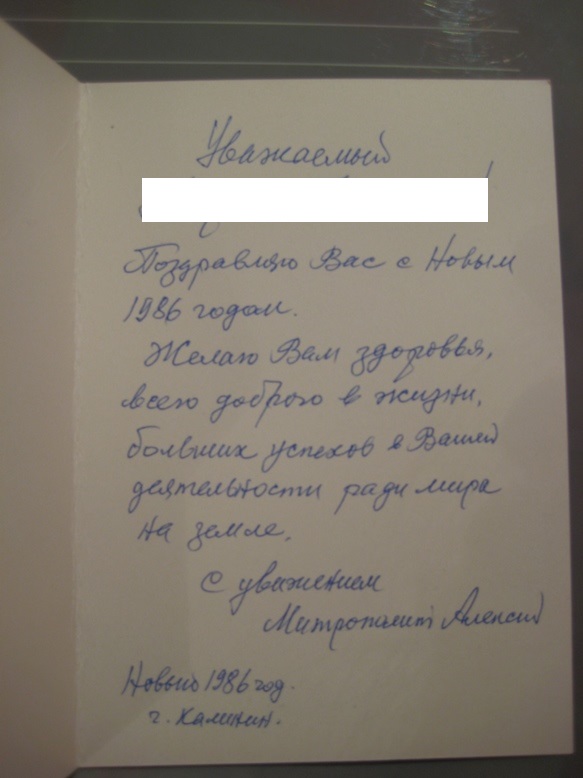 Уважаемый
Поздравляю Вас с Новым
1986 годом.
Желаю Вам здоровья,
всего доброго в жизни,
больших успехов в Вашей
деятельности ради мира
на земле.
С уважением
Митрополит Алексий
Новый 1986 год.
г. Калинин.